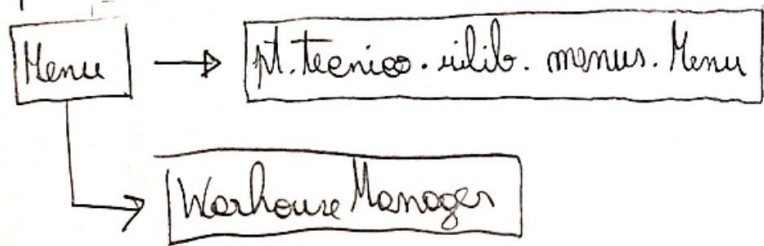 Menu
pt.tecnico.uilib.menus.Menu
WarhouseManager